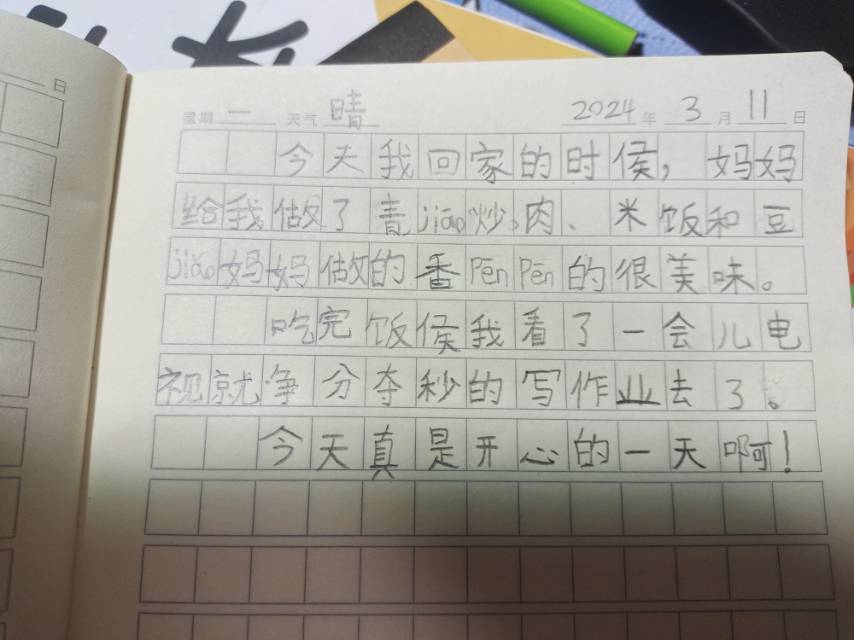 日
星期 一 天气 晴 2024 年 3 月 11 日
今天我回家的时侯，妈妈
给我做了青jiāo炒肉、米饭和豆
jiǎo妈妈做的番PēnPēn的很美味。
吃完饭侯我看了一会儿电
视就争分夺秒的写作业去了。
今天真是开心的一天啊！